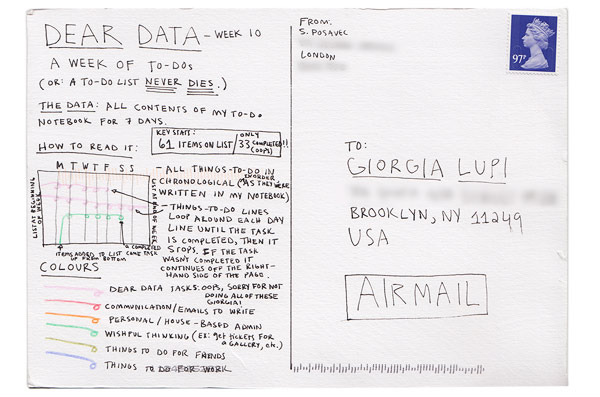 DEAR DATA - WEEK 10
A WEEK OF TO-DOS
(OR: A TO-DO LIST NEVER DIES.)
THE DATA: ALL CONTENTS OF MY TO-DO
NOTEBOOK FOR 7 DAYS.
KEY STATS:
61 ITEMS ON LIST / ONLY 33 COMPLETED!! (OOPS)
HOW TO READ IT:
M T W T F S S
LIST AT BEGINNING OF WEEK
LIST AT END OF WEEK
ITEMS ADDED TO LIST CAME UP FROM BOTTOM
A COMPLETED TASK
- ALL THINGS-TO-DO IN
CHRONOLOGICAL ORDER (AS THEY WERE
WRITTEN IN MY NOTEBOOK)
- THINGS-TO-DO LINES
LOOP AROUND EACH DAY
LINE UNTIL THE TASK
IS COMPLETED, THEN IT
STOPS. IF THE TASK
WASN'T COMPLETED IT
CONTINUES OFF THE RIGHT-
HAND SIDE OF THE PAGE.
COLOURS
DEAR DATA TASKS: OOPS, SORRY FOR NOT
DOING ALL OF THESE
GIORGIA!
COMMUNICATION/EMAILS TO WRITE
PERSONAL/HOUSE-BASED ADMIN
WISHFUL THINKING (EX: GET TICKETS FOR
A GALLERY, etc.)
THINGS TO DO FOR FRIENDS
THINGS TO DO FOR WORK
FROM:
S. POSAVEC
LONDON
97P
TO:
GIORGIA LUPI
BROOKLYN, NY 11249
USA
AIRMAIL